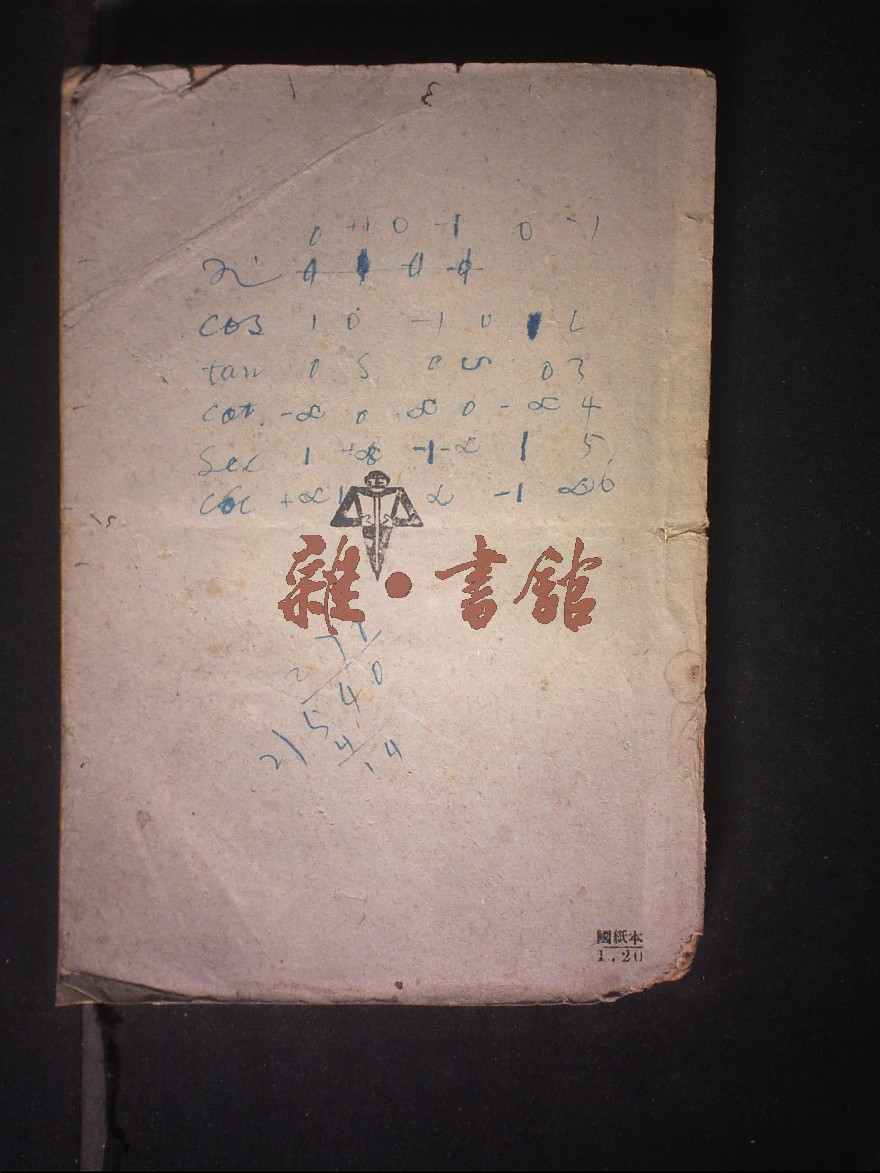 0 +1 0 -1 0 -1
0 1 0 -1
cos 1 0 -1 0 2
tan 0 0 0 3
cot -∞ 0 -∞ 0 -∞ 4
Sec 1 +∞ -1 -∞ 1 5
csc +∞ 1 ∞ -1 ∞ 6
雜·書館
2 7
2)540
4
14
國紙本
1.20